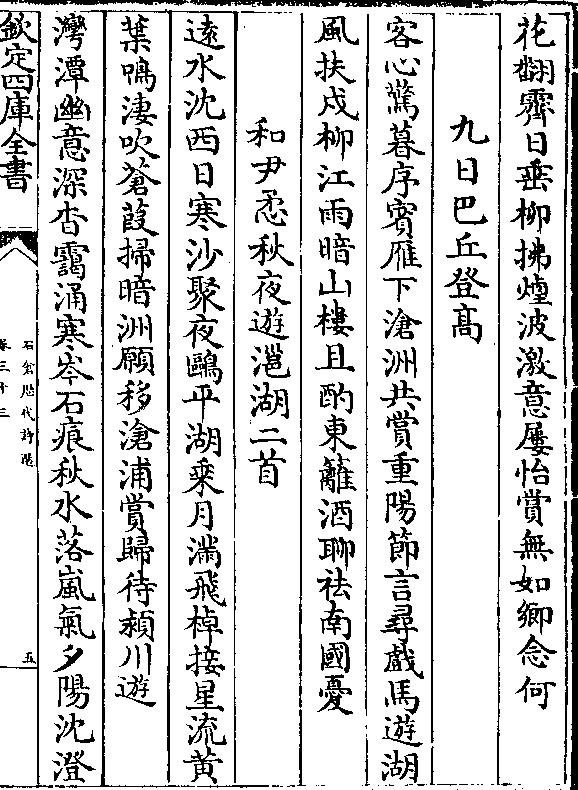 花翻霽日垂柳拂煙波激意屢怡賞無如鄉念何
九日巴丘登高
客心驚暮序賓雁下滄洲共賞重陽節言尋戲馬遊湖
風扶戍柳江雨暗山樓且酌東籬酒聊祛南國憂
和尹懋秋夜遊灉湖二首
遠水沈西日寒沙聚夜鷗平湖乘月滿飛棹接星流黃
葉鳴淒吹蒼葭掃暗洲願移滄浦賞歸待潁川遊
灣潭幽意深杳靄涌寒岑石痕秋水落嵐氣夕陽沈澄
欽定四庫全書
石倉歷代詩選
卷三十三
五